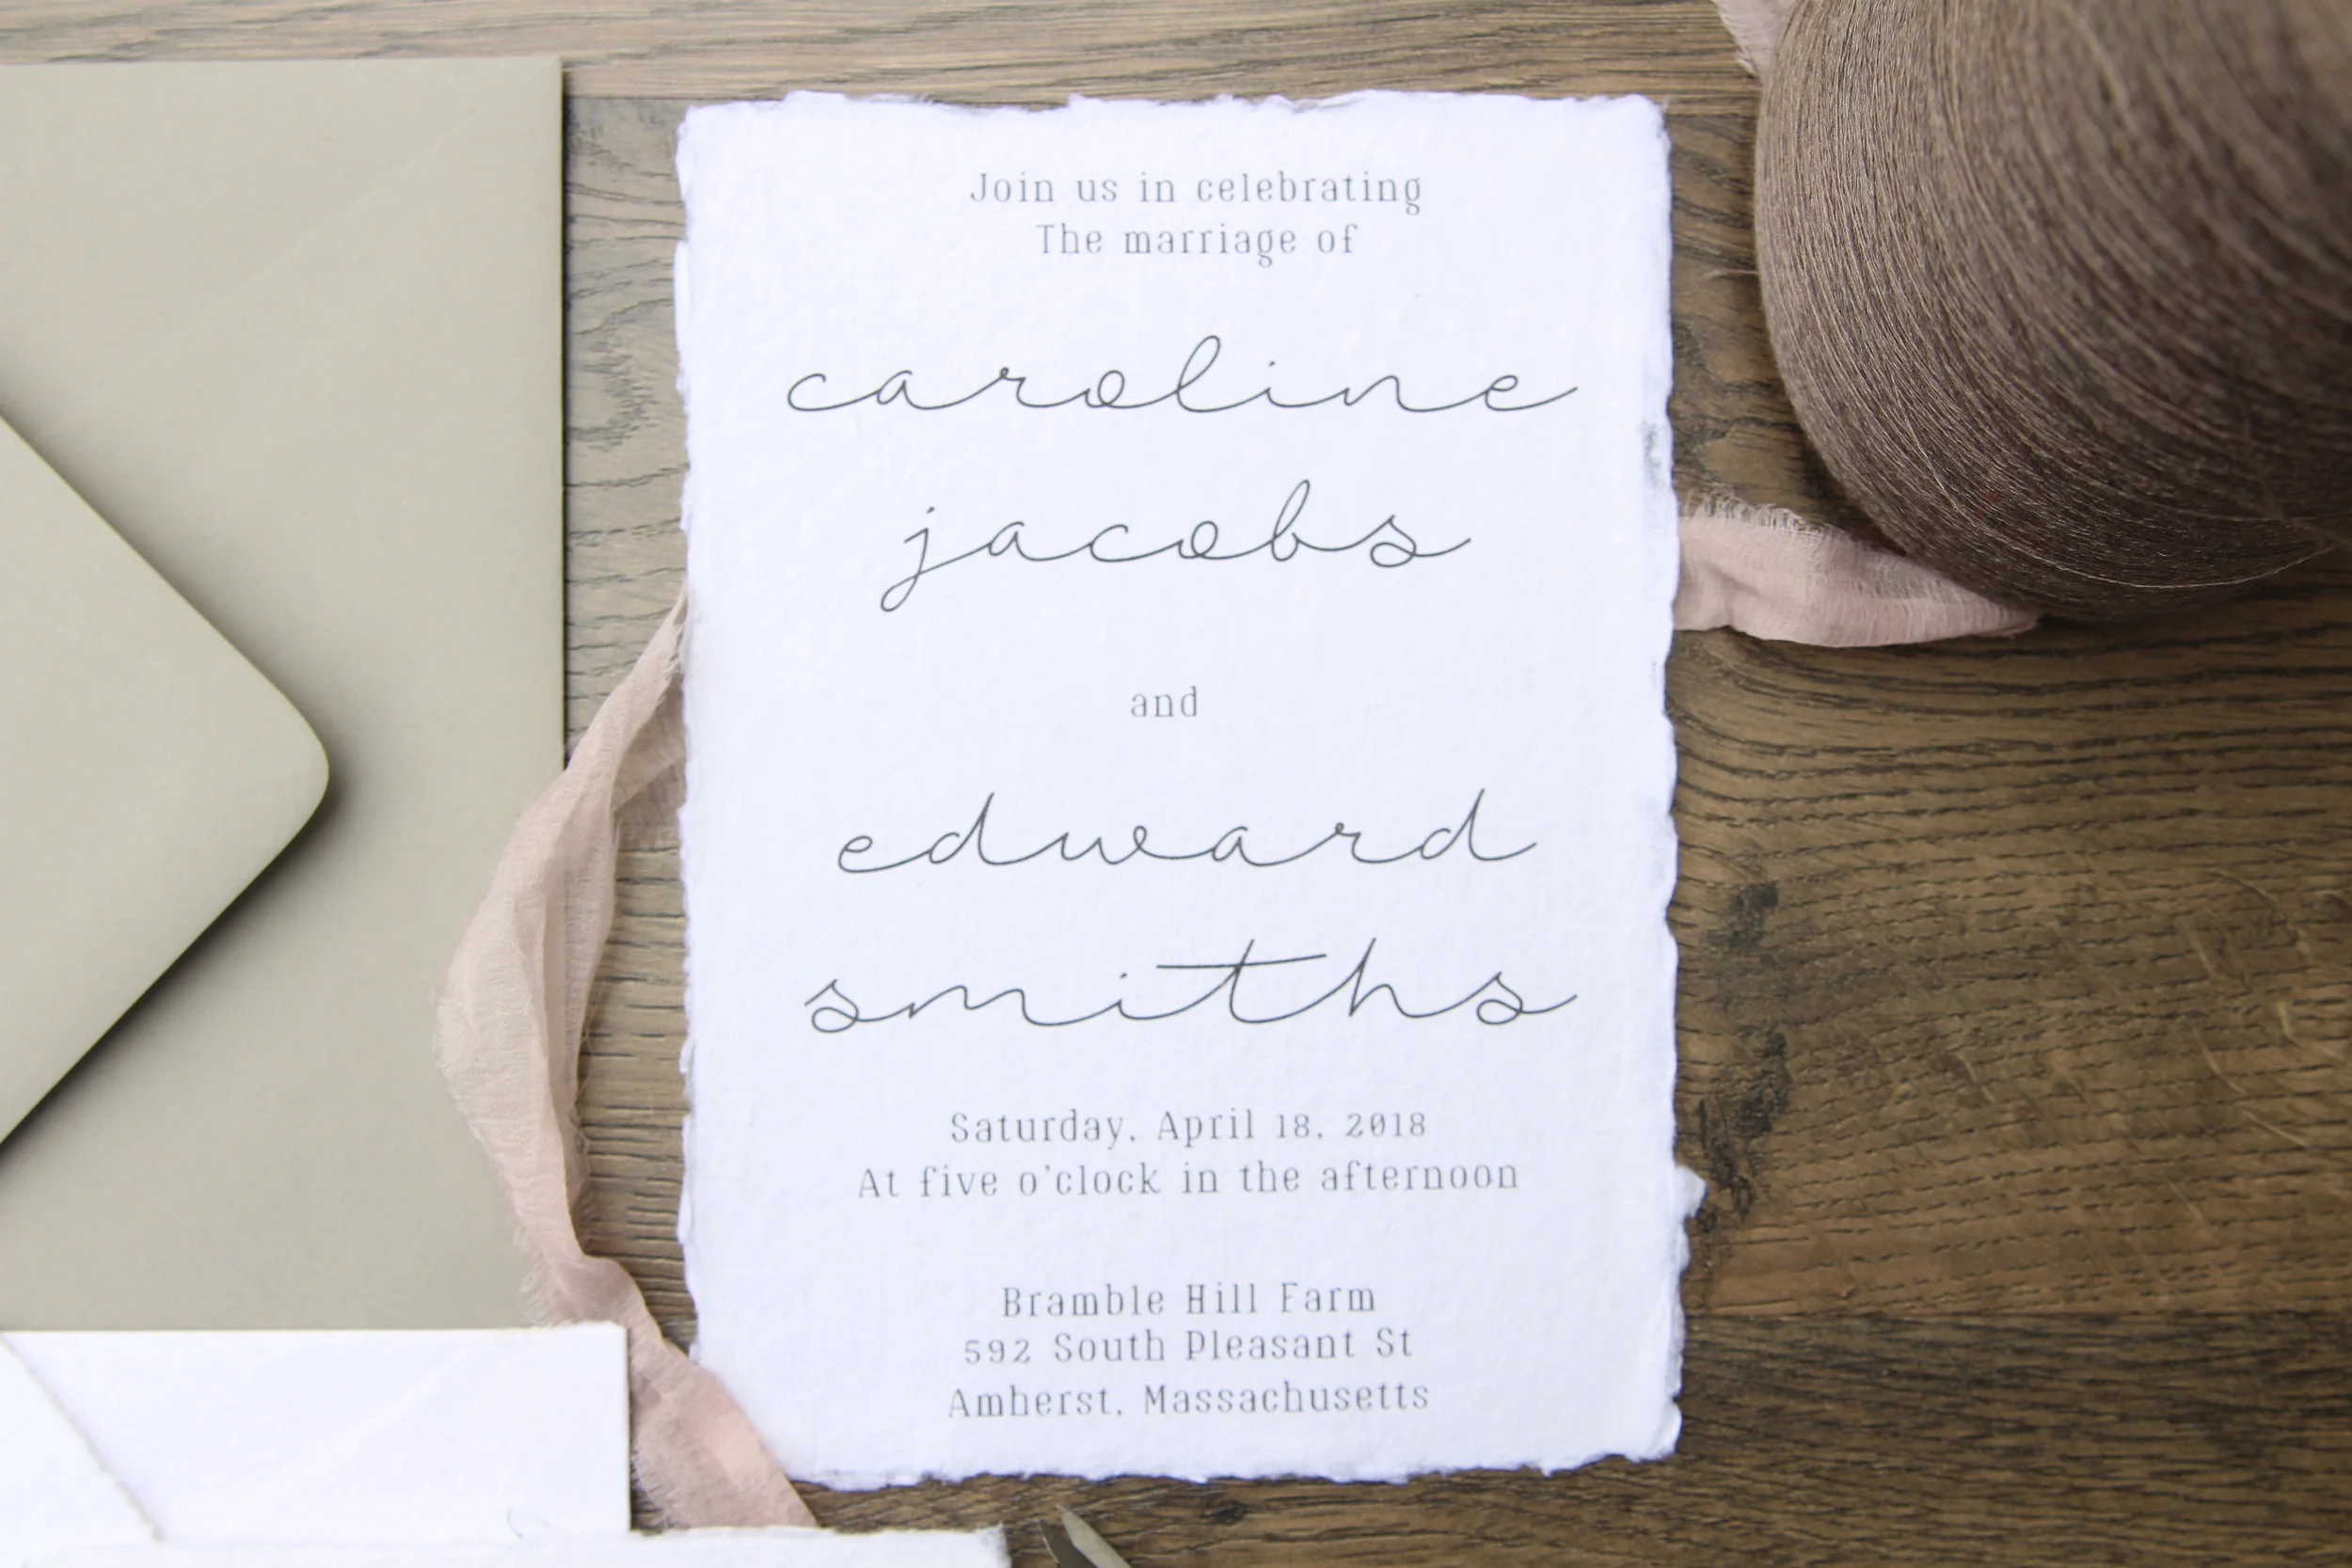 Join us in celebrating
The marriage of
caroline
jacobs
and
edward
smiths
Saturday, April 18, 2018
At five o'clock in the afternoon
Bramble Hill Farm
592 South Pleasant St
Amherst, Massachusetts